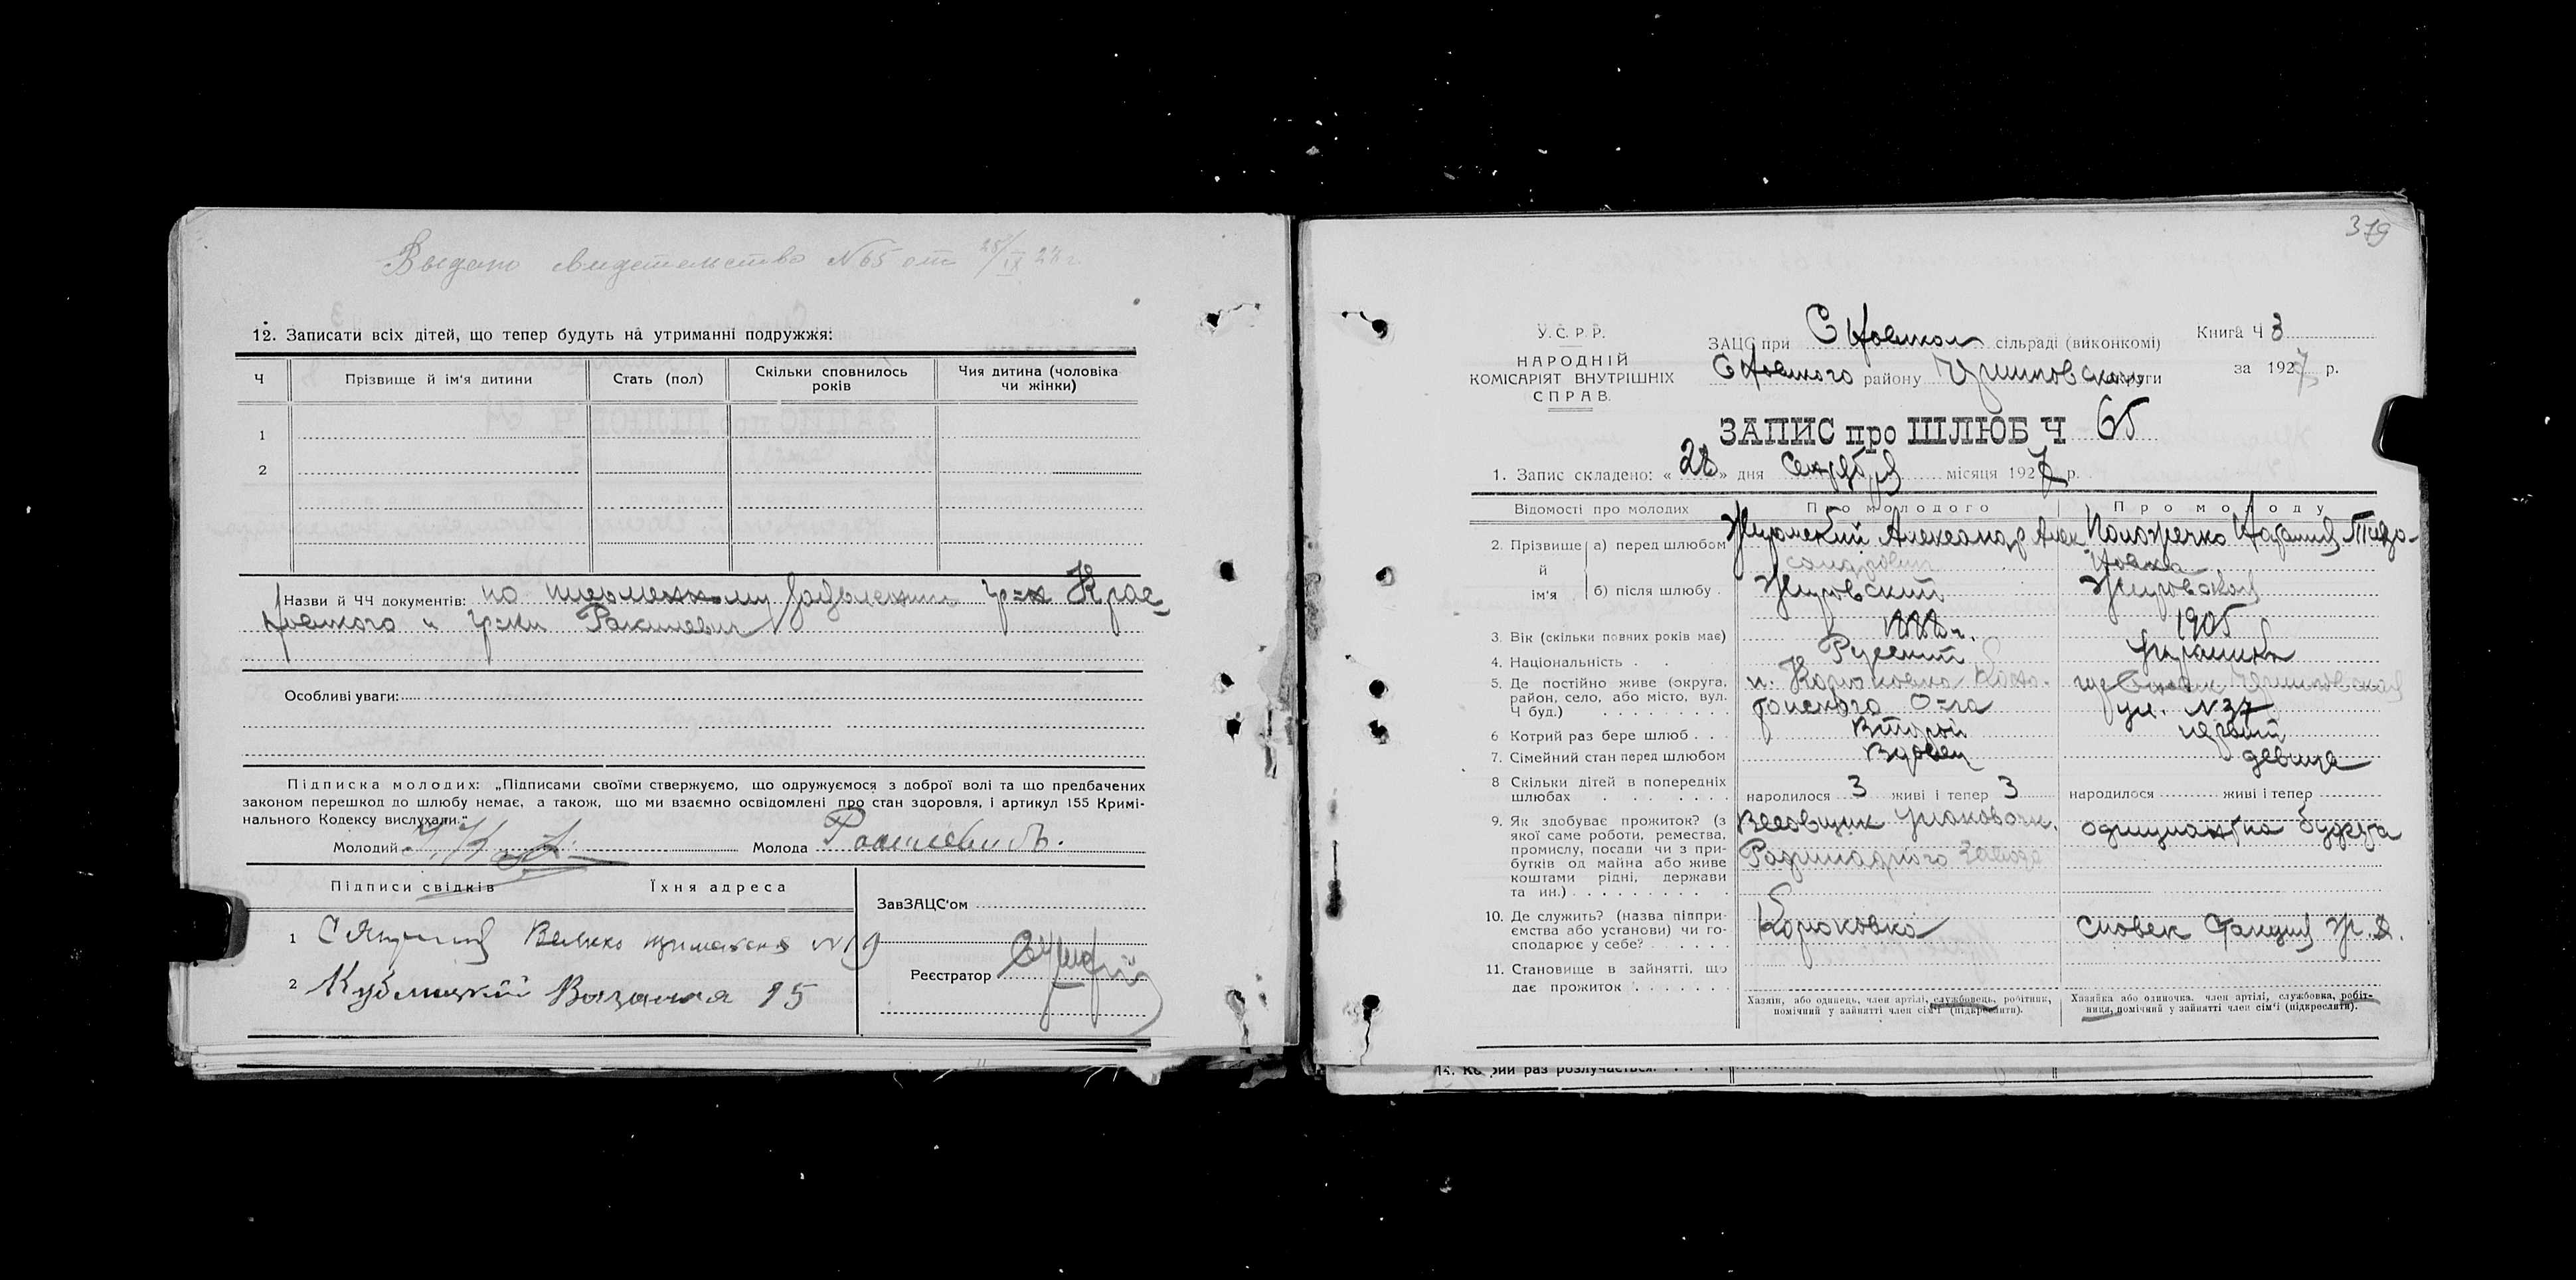 Выдано свидетельство N 65 от 28/IX 27 г.
12. Записати всіх дітей, що тепер будуть на утриманні подружжя:
Ч
Прізвище й ім'я дитини
Стать (пол)
Скільки сповнилось років
Чия дитина (чоловіка чи жінки)
1
2
Назви й ЧЧ документів: по гр-н
и гр-ки
Особливі уваги:
Підписка молодих: „Підписами своїми ствержуємо, що одружуємося з доброї волі та що предбачених
законом перешкод до шлюбу немає, а також, що ми взаємно освідомлені про стан здоровля, і артикул 155 Кримі-
нального Кодексу вислухали."
Молодий
Молода
Підписи свідків Їхня адреса
1
2 Кублицкий Вокзальная 15
ЗавЗАЦС'ом
Реєстратор
319
У.С.Р.Р.
НАРОДНІЙ
КОМІСАРІЯТ ВНУТРІШНІХ
СПРАВ.
ЗАЦС при сільраді (виконкомі)
району округи
Книга Ч 3
за 1927 р.
ЗАПИС про ШЛЮБ Ч 65
1. Запис складено: « 28 » дня Сентября місяця 1927 р.
Відомості про молодих
Про молодого
Про молоду
2. Прізвище й ім'я
а) перед шлюбом Александр Алек
сандрович
б) після шлюбу Жировский Жировская
3. Вік (скільки повних років має) 1888 г. 1905
4. Національність Русский
5. Де постійно живе (округа,
район, село, або місто, вул.
Ч буд.)
м. Корюковка Коно-
топского О-га
ул. N 37
6 Котрий раз бере шлюб Второй первый
7. Сімейний стан перед шлюбом Вдовец девица
8 Скільки дітей в попередніх
шлюбах
народилося 3 живі і тепер 3
народилося живі і тепер
9. Як здобуває прожиток? (з
якої саме роботи, ремества,
промислу, посади чи з при-
бутків од майна або живе
коштами рідні, держави
та ин.)
Весовщик
Рафинадного завода
официантка буфета
10. Де служить? (назва підпри-
ємства або установи) чи го-
сподарює у себе?
Корюковка
Сновск Станция ж.д.
11. Становище в зайнятті, що
дає прожиток
Хазяїн, або одинець, член артілі, службовець, робітник,
помічний у зайнятті член сім'ї (підкреслити).
Хазяйка або одиночка, член артілі, службовка, робіт-
ниця, помічний у зайнятті член сім'ї (підкреслити).
Котрий раз розлучається.